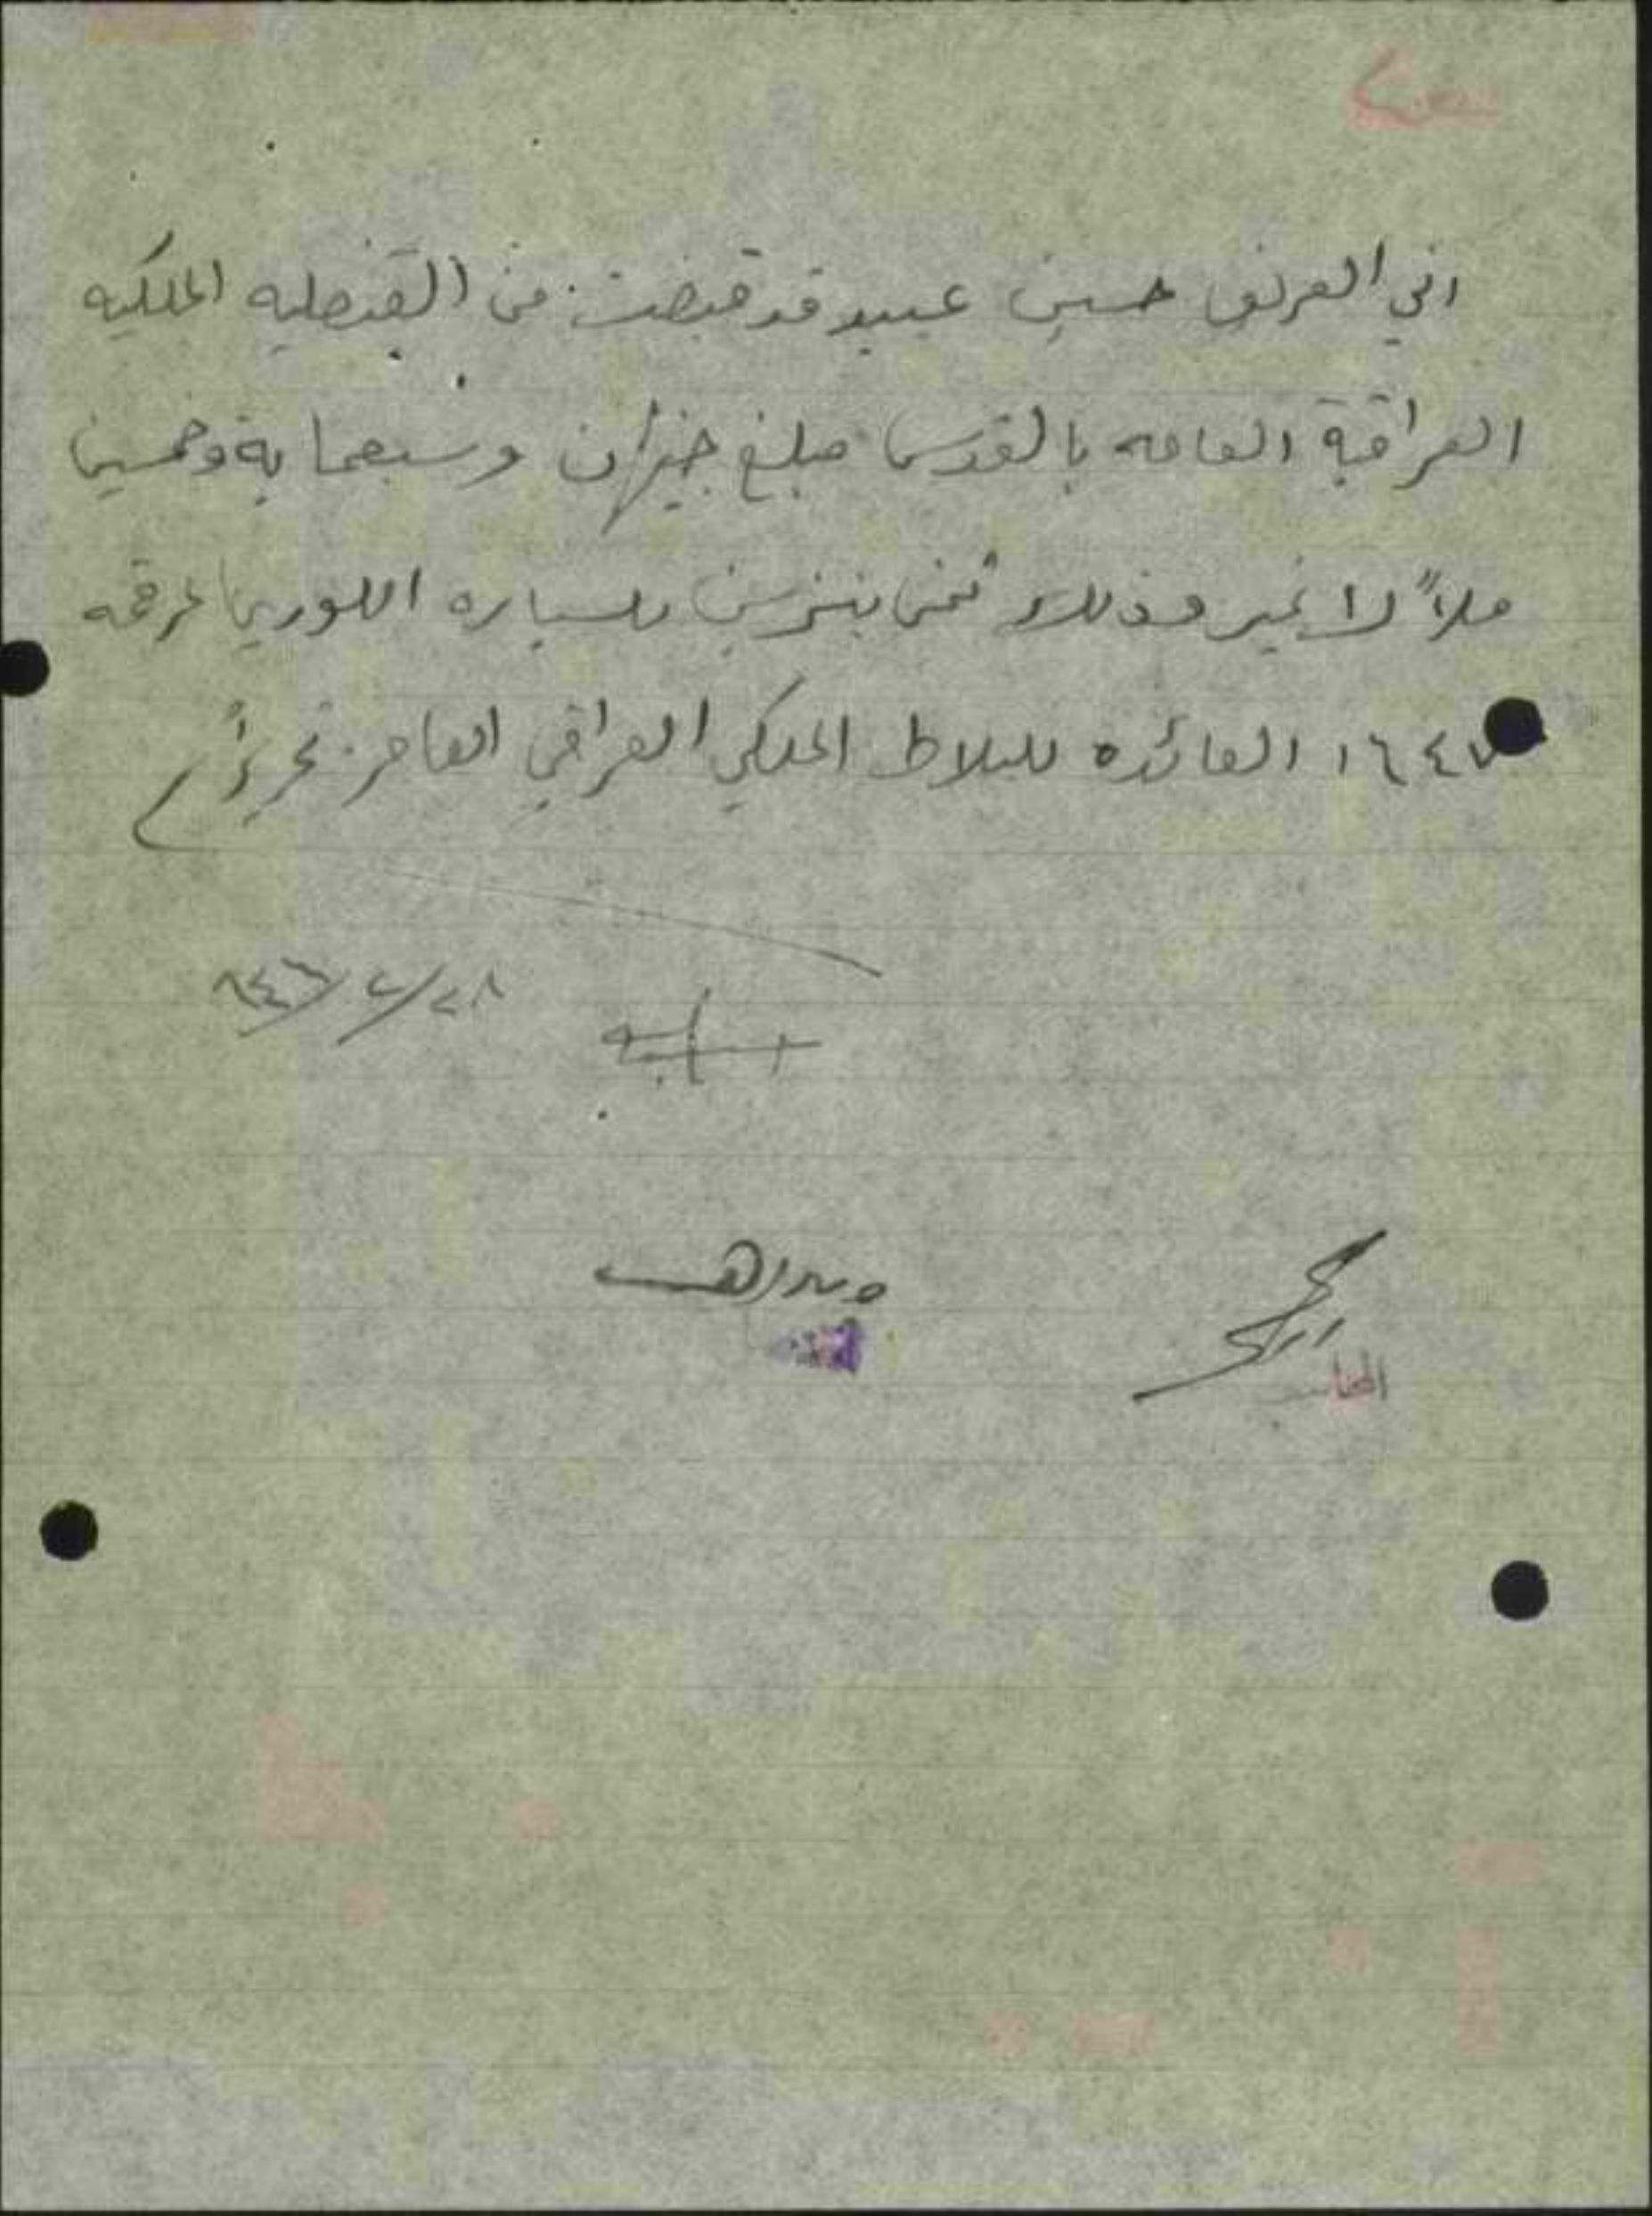 اني العريف حسين عبيد قد قبضت من القنصليه الملكيه
العراقية العامه بالقدس مبلغ جنيهان وسبعماية وخمسين
ملاً لا غير وذلك ثمن بنزين للسياره اللوري المرقمه
١٦٤٧ العائده للبلاط الملكي العراقي العامر. تحريراً
٢٨/٢/٩٤٦
المحاسب